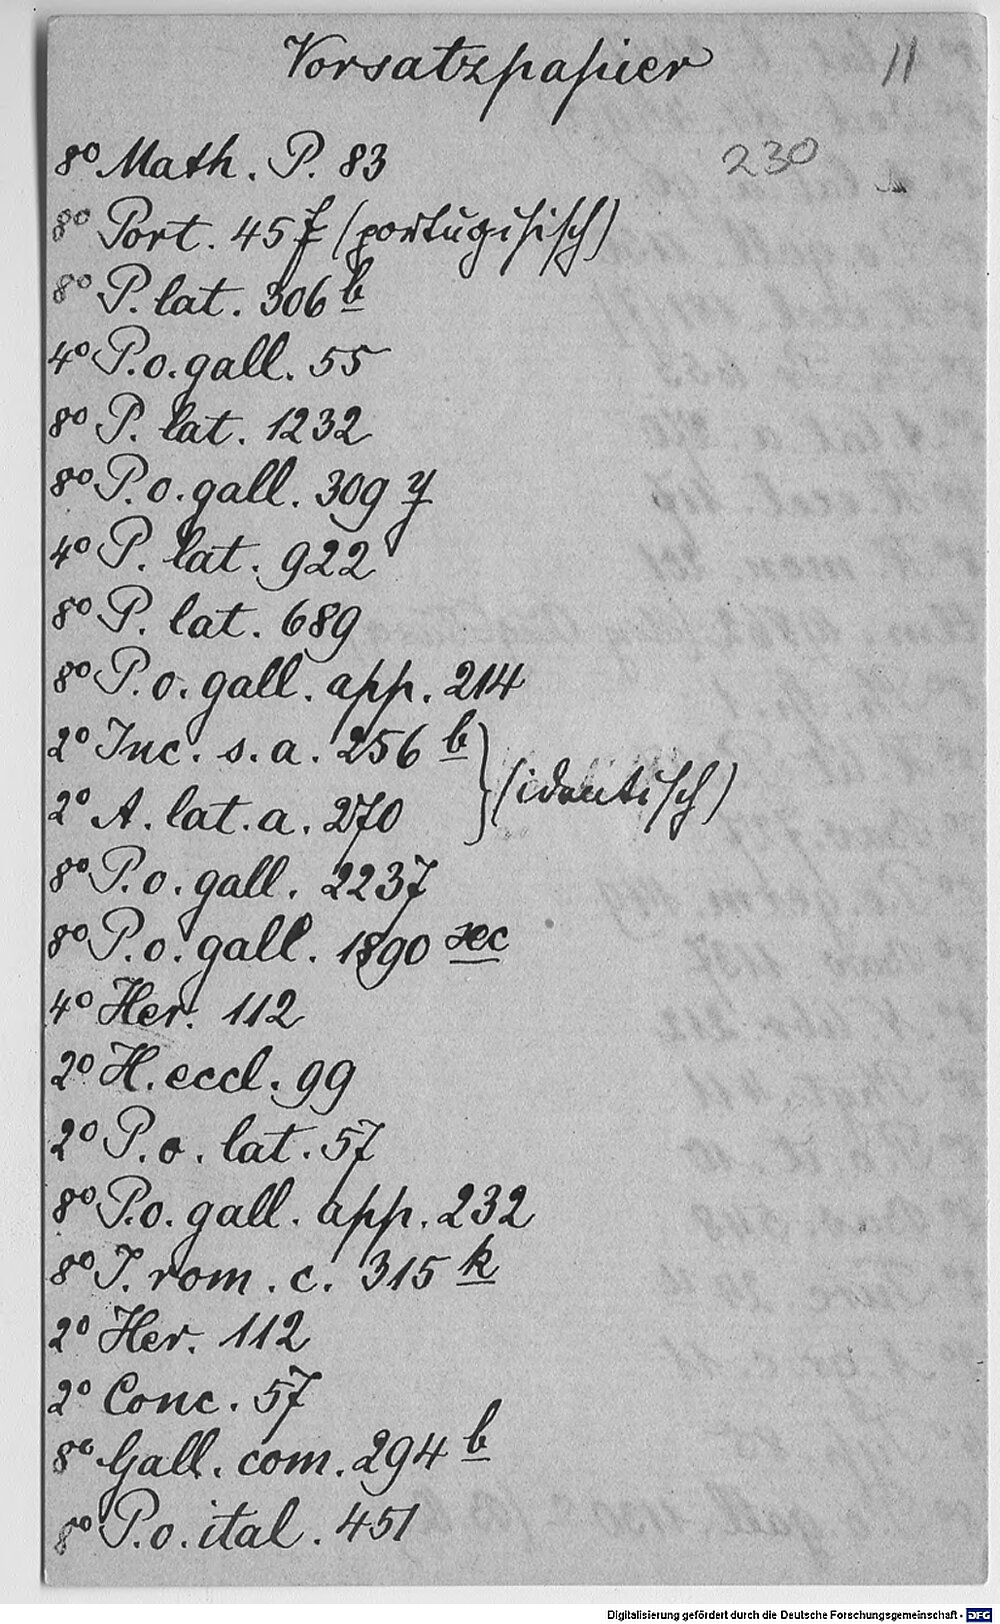 Vorsatzpapier 11
230
8° Math. P. 83
8° Port. 45 f (portugisisch)
8° P. lat. 306 b
4° P.o. gall. 55
8° P. lat. 1232
8° P.o. gall. 309 y
4° P. lat. 922
8° P. lat. 689
8° P.o. gall. app. 214
2° Inc. s.a. 256 b
2° A. lat. a. 270 } (identisch)
8° P.o. gall. 2237
8° P.o. gall. 1890 xec
4° Her. 112
2° H. eccl. 99
2° P.o. lat. 57
8° P.o. gall. app. 232
8° J. rom. c. 315 k
2° Her. 112
2° Conc. 57
8° Gall. com. 294 b
8° P.o. ital. 451
Digitalisierung gefördert durch die Deutsche Forschungsgemeinschaft - DFG